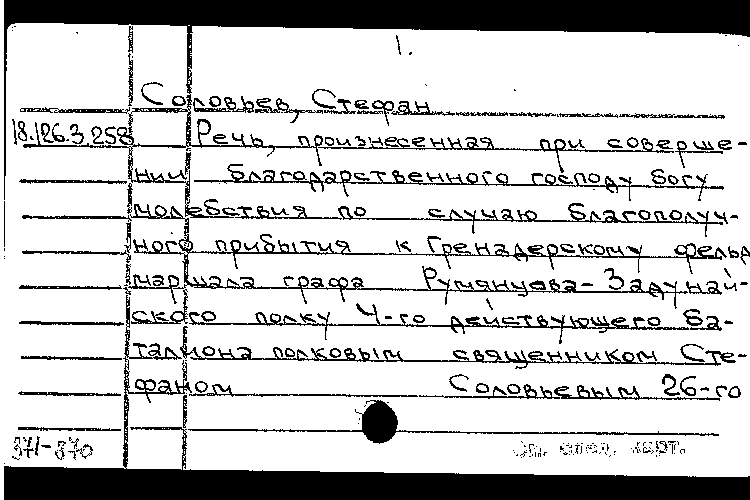 1.
Соловьев, Стефан
18.126.3.258 Речь, произнесенная при соверше-
нии благодарственного господу богу
молебствия по случаю благополуч-
ного прибытия к Гренадерскому фельд
маршала графа Румянцова-Задунай-
ского полку 4-го действующего ба-
талиона полковым священником Сте-
фаном Соловьевым 26-го
371-370